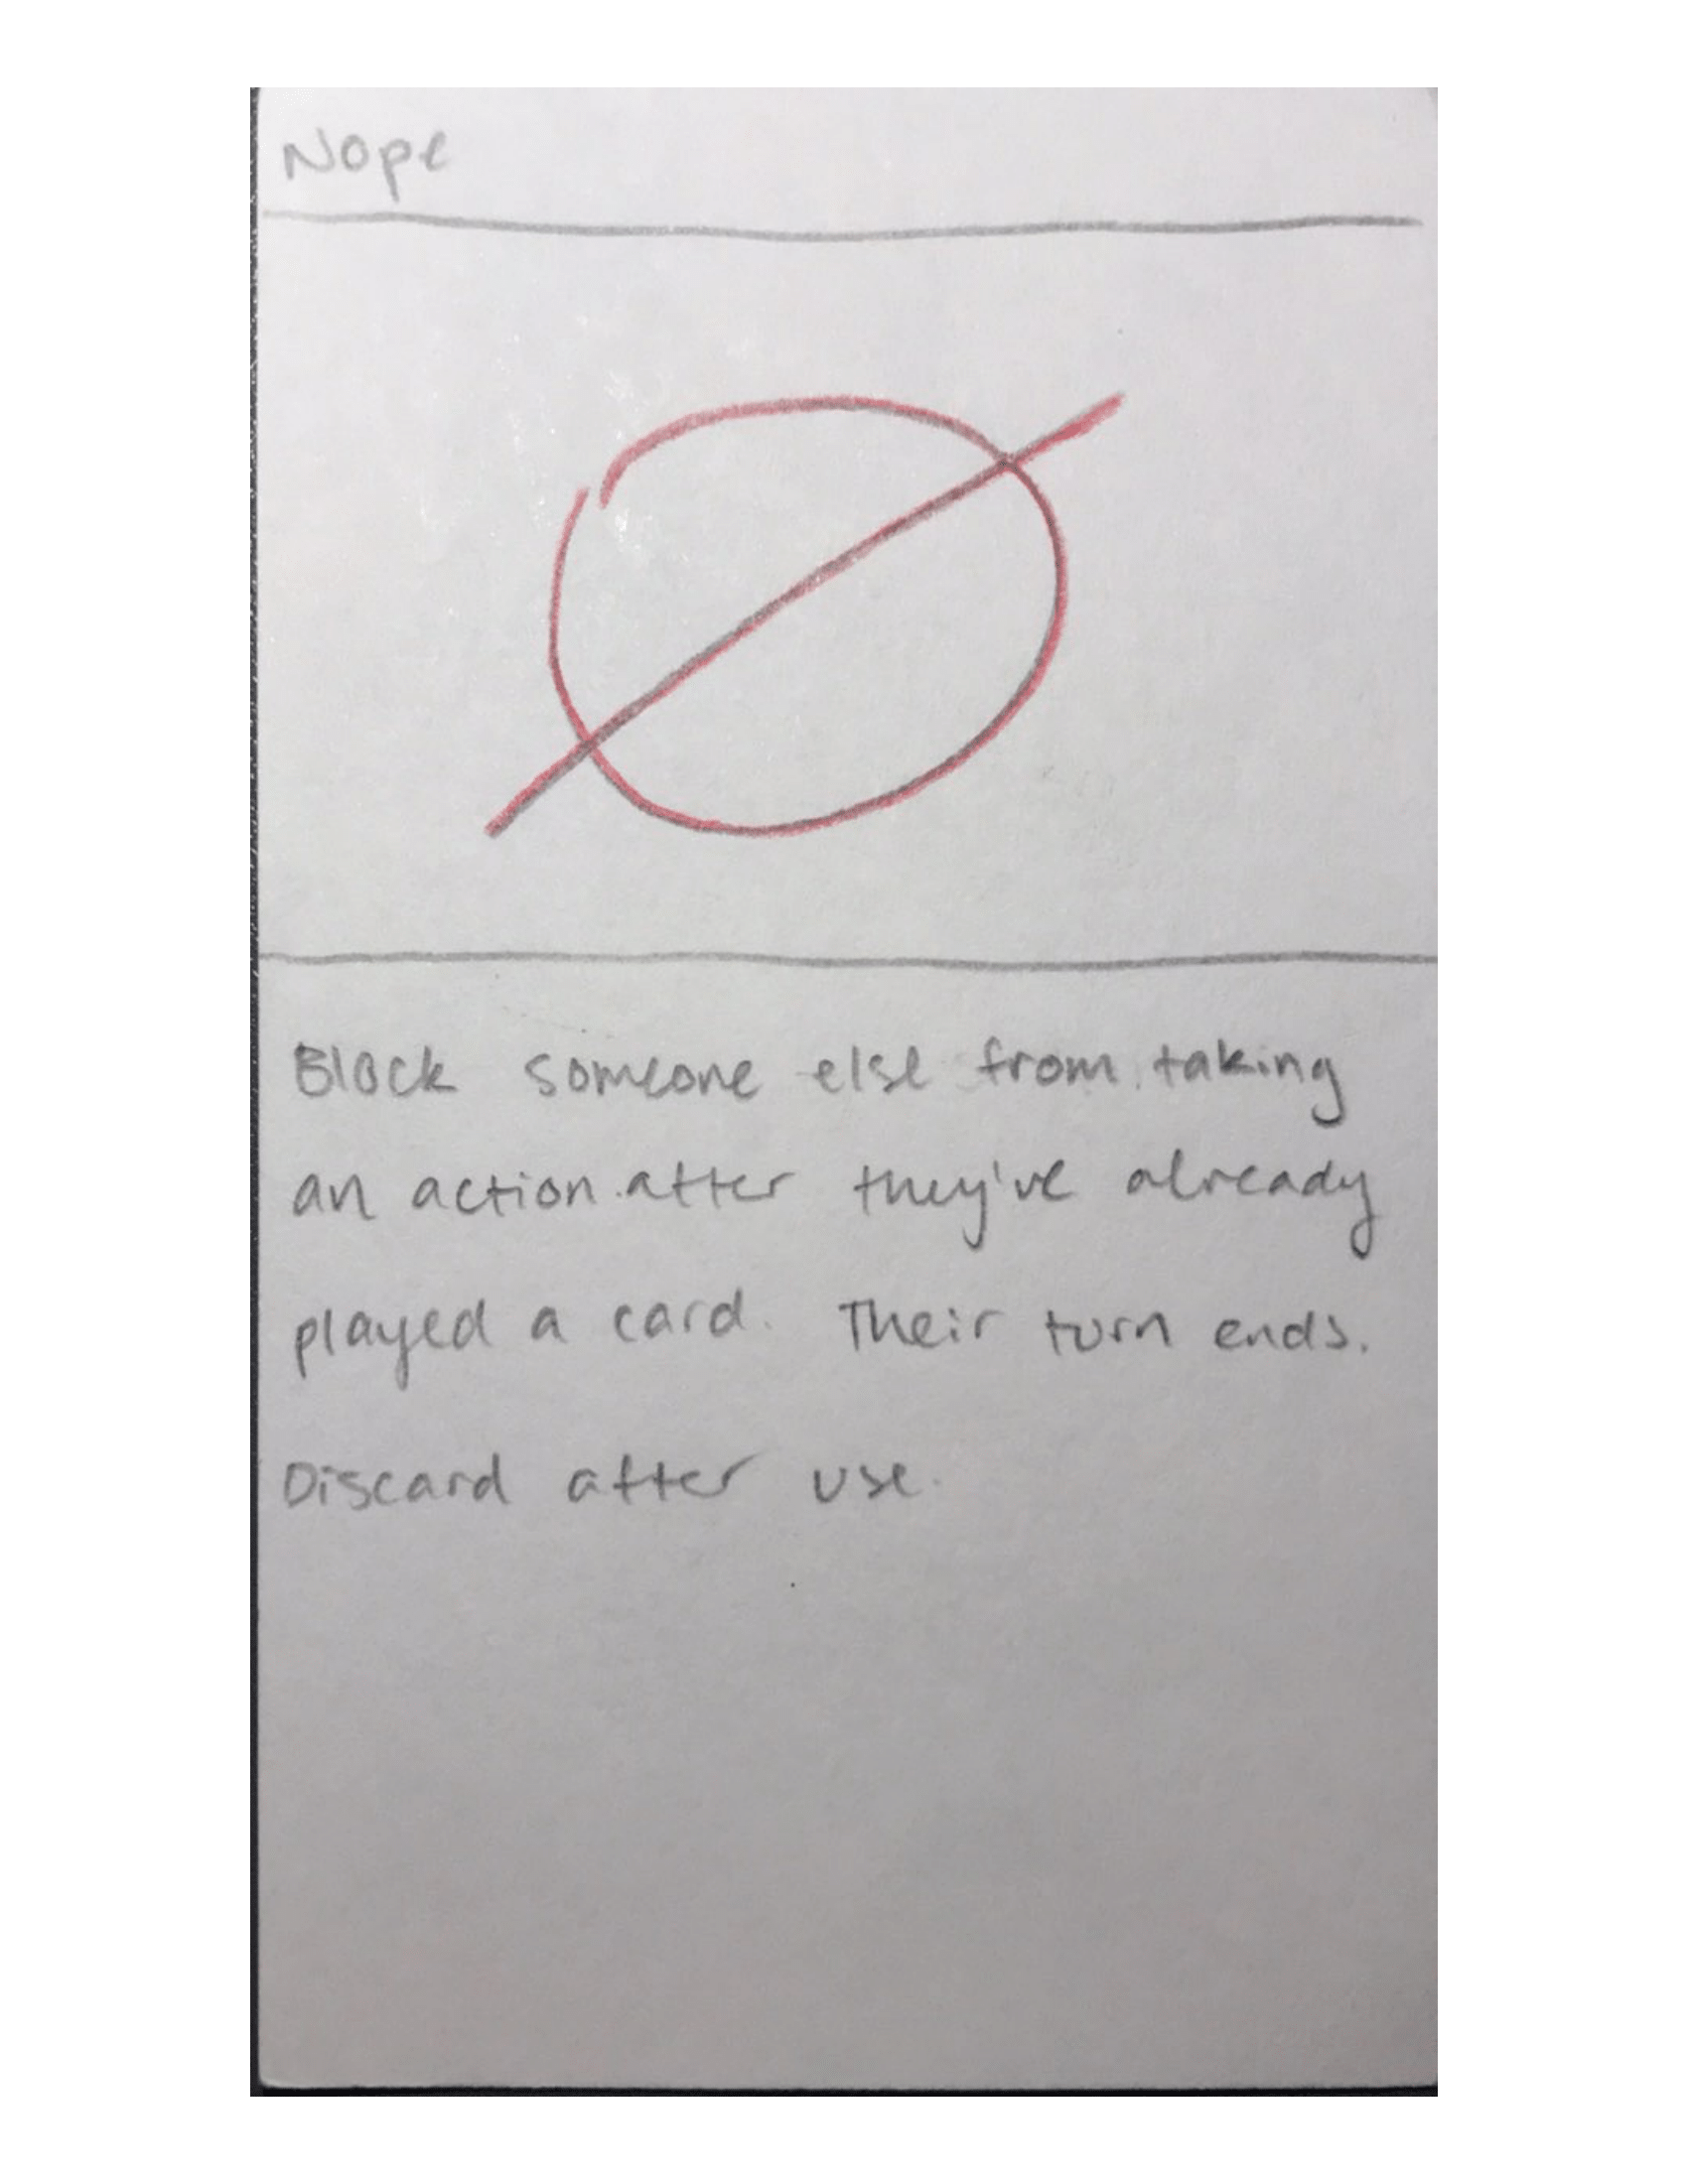 Nope
Block someone else from taking
an action after they've already
played a card. Their turn ends.
Discard after use.